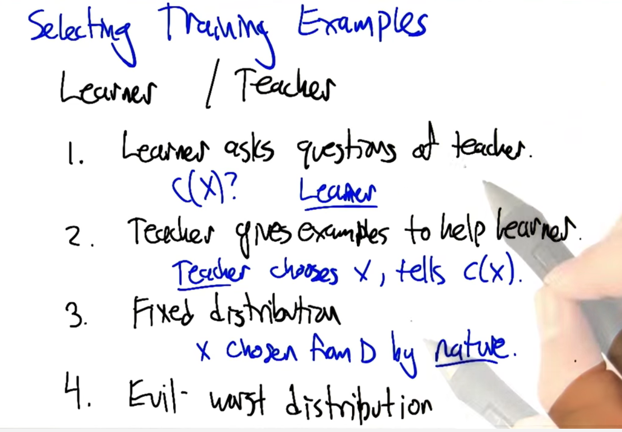 Selecting Training Examples
Learner / Teacher
1. Learner asks questions of teacher.
c(x)? Learner
2. Teacher gives examples to help learner.
Teacher chooses x, tells c(x).
3. Fixed distribution
x chosen from D by nature.
4. Evil- worst distribution